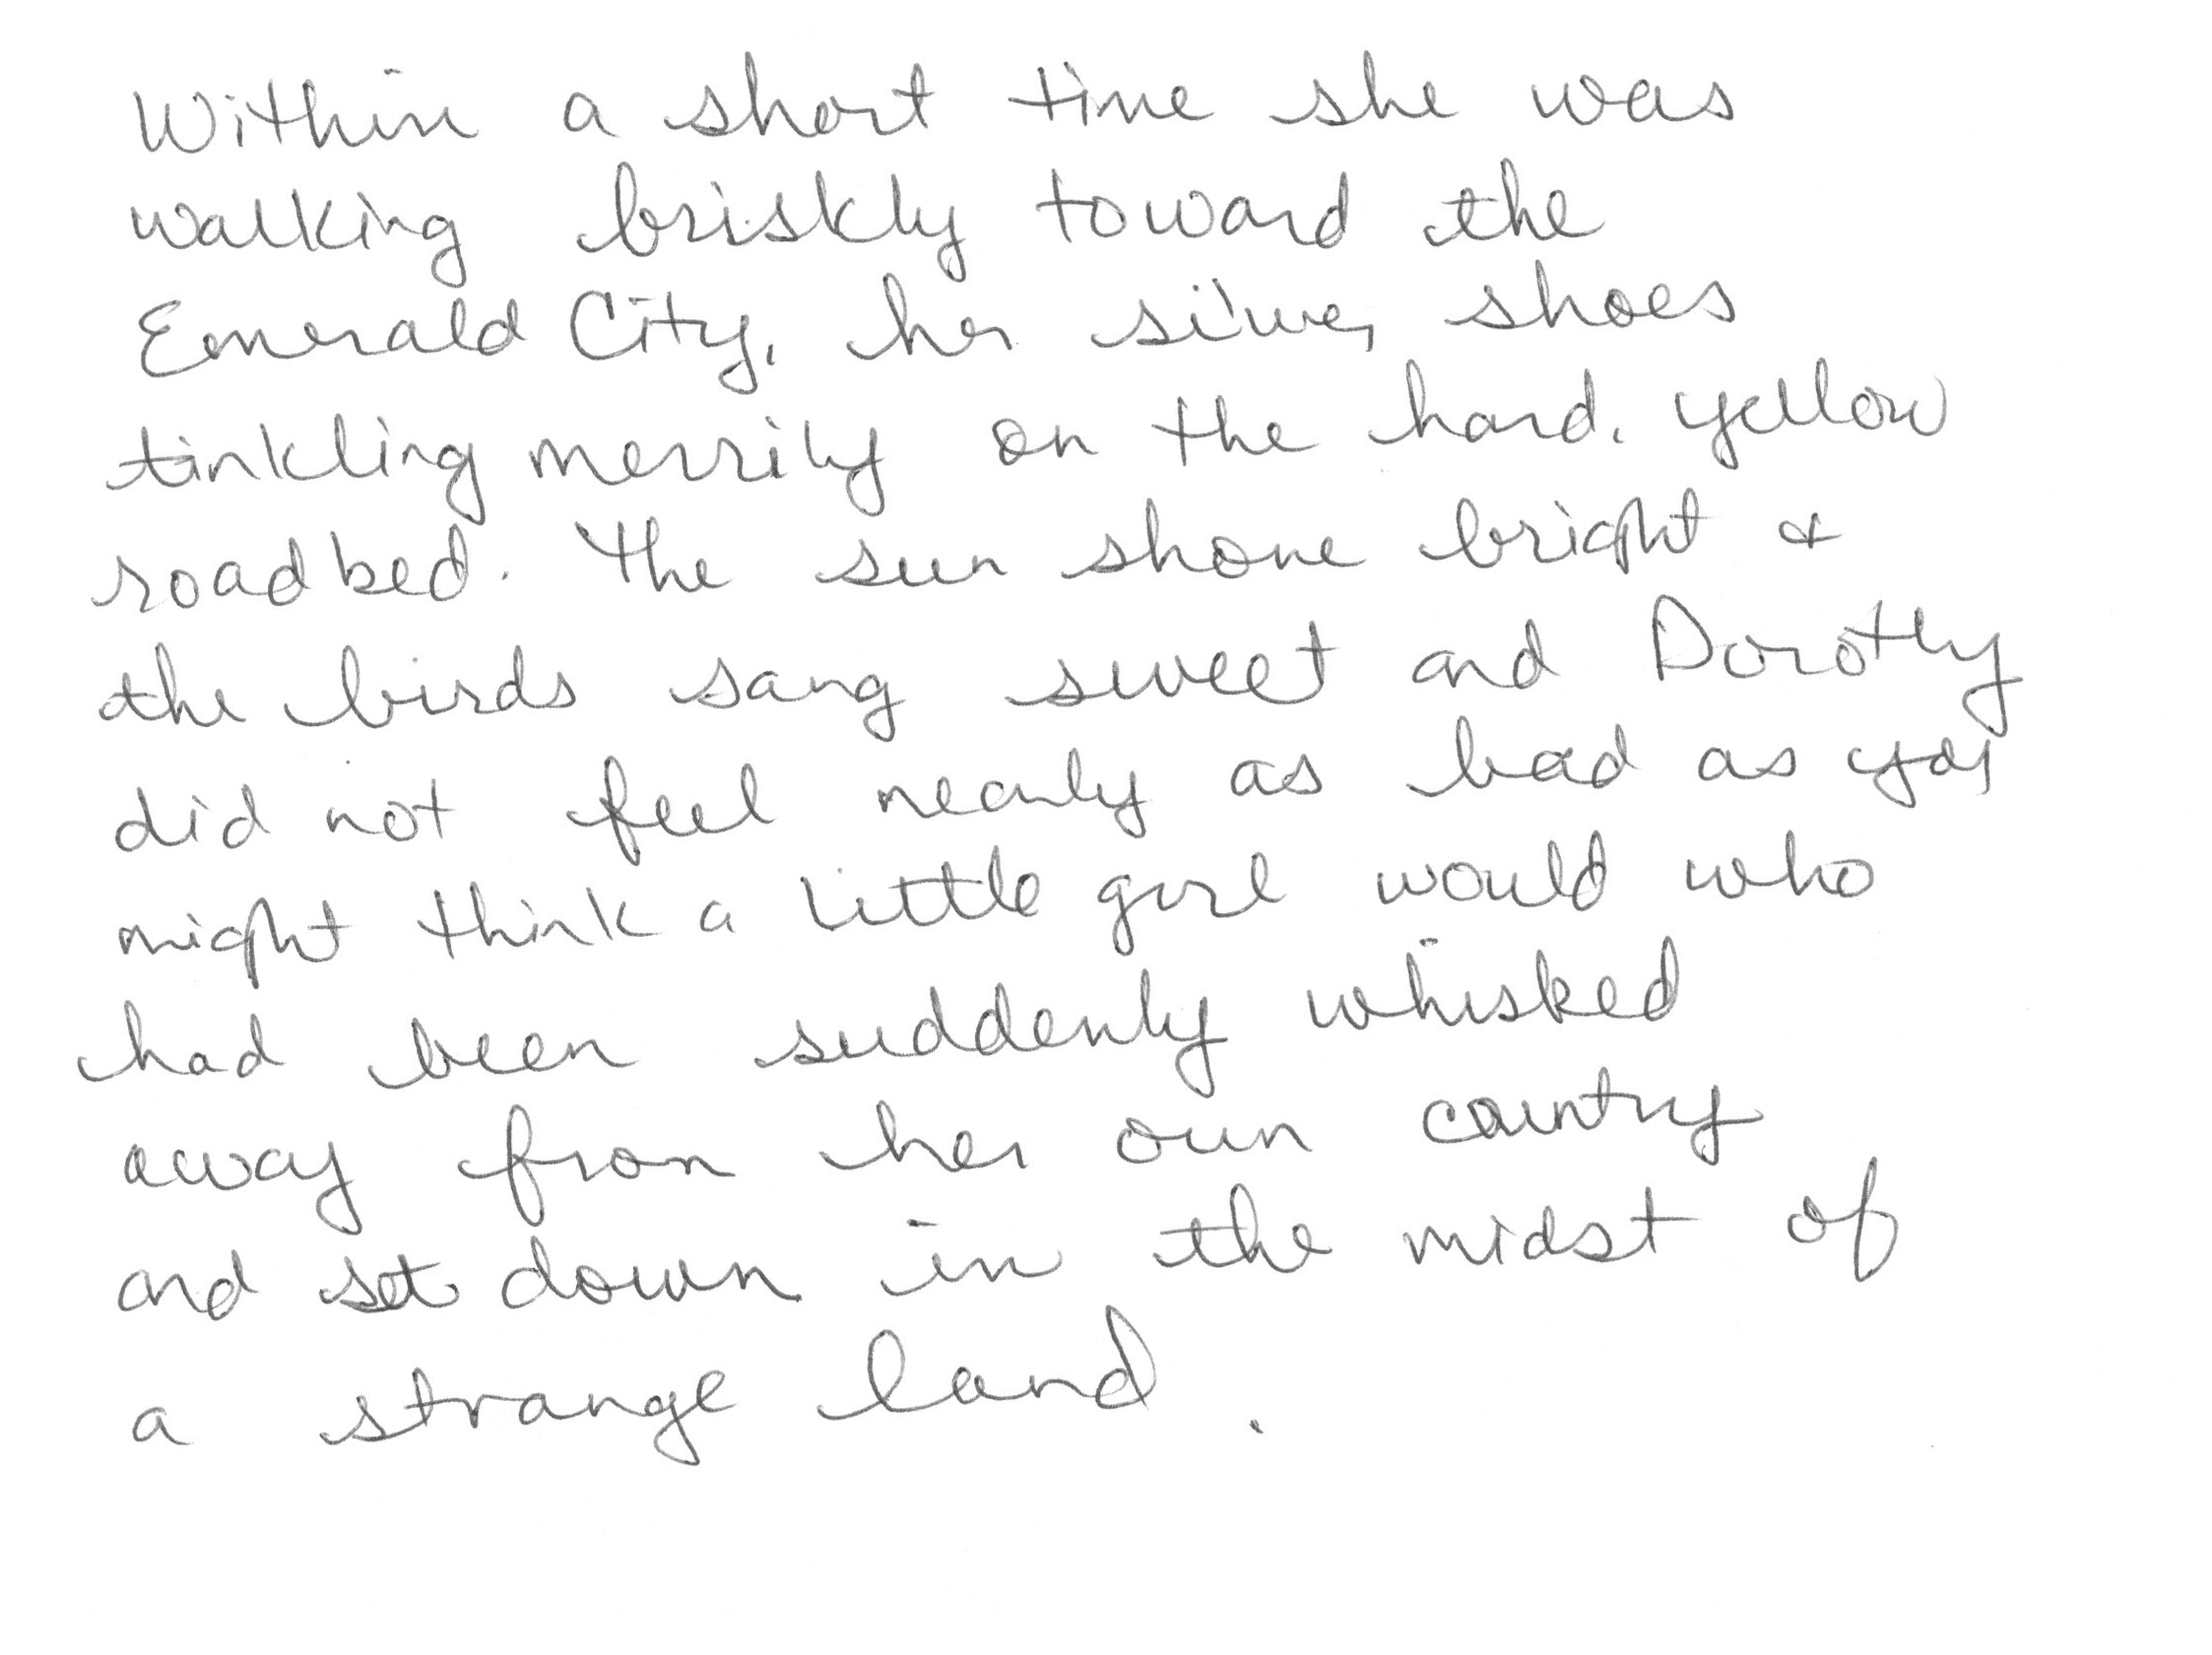 Within a short time she was
walking briskly toward the
Emerald City, her silver shoes
tinkling merrily on the hard, yellow
roadbed. The sun shone bright &
the birds sang sweet and Dorothy
did not feel nearly as bad as you
might think a little girl would who
had been suddenly whisked
away from her own country
and set down in the midst of
a strange land.